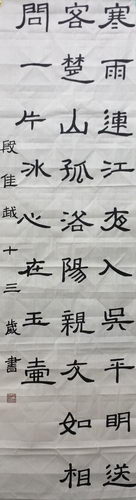 寒雨連江夜入吳平明送
客楚山孤洛陽親友如相
問一片冰心在玉壺
段佳越十三歲書